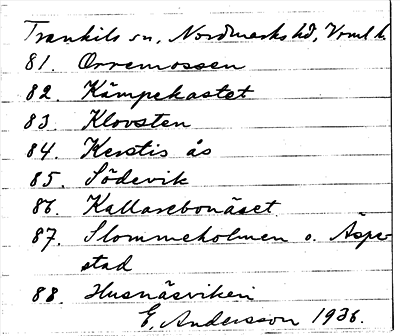 Trankils sn, Nordmarks hd, Vrml.
81. Orremossen
82. Kämpekastet
83. Klovsten
84. Kerstis ås
85. Södevik
86. Kallarebonäset
87. Slommeholmen o. Äspe-
stad
88. Husnäsviken
E. Andersson 1936.